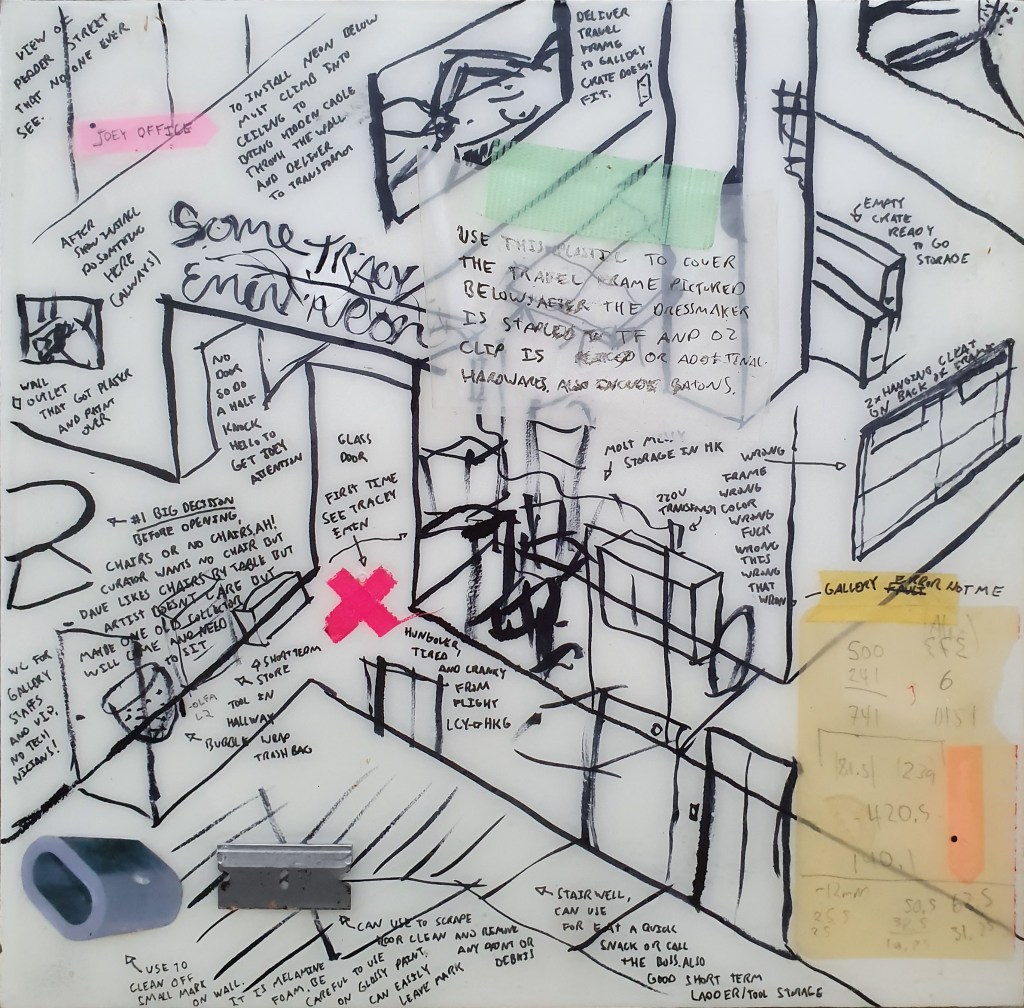 VIEW OF
PEDDER STREET
THAT NO ONE EVER
SEE.
JOEY OFFICE
TO INSTALL NEON BELOW
MUST CLIMB INTO
CEILING TO
BRING HIDDEN CABLE
THROUGH THE WALL
AND DELIVER
TO TRANSFORMER
DELIVER
TRAVEL
FRAME
TO GALLERY
CRATE DOESNT
FIT.
EMPTY
CRATE
READY
TO GO
STORAGE
AFTER
SHOW INSTALL
DO SOMETHING
HERE
(ALWAYS)
SOME TRACY
EMIN NEON
USE THIS PLASTIC TO COVER
THE TRAVEL FRAME PICTURED
BELOW AFTER THE DRESSMAKER
IS STAPLED TO TF AND OZ
CLIP IS OR ADDITINAL
HARDWARE. ALSO INCLUDE BATONS.
WALL
OUTLET
THAT GOT PLASTER
AND PAINT
OVER
NO
DOOR
SO DO
A HALF
KNOCK
HELLO TO
GET JOEY
ATTENTION
GLASS
DOOR
FIRST TIME
SEE TRACEY
EMEN
2X HANGING CLEAT
ON BACK OF FRAME
MOLT MESSY
STORAGE IN HK
220V
TRANSFORMER
WRONG
FRAME
WRONG
COLOR
WRONG
FUCK
WRONG
THIS
WRONG
THAT
WRON
#1 BIG DECISION
BEFORE OPENING,
CHAIRS OR NO CHAIRS, AH!
CURATOR WANTS NO CHAIR BUT
DAVE LIKES CHAIRS BY TABLE BUT
ARTIST DOESN'T CARE BUT
MAYBE ONE OLD COLLECTOR
WILL COME AND NEED
TO SIT
GALLERY FAULT ERROR NOT ME
WC FOR
GALLERY
STAFFS
AND VIP,
NO TECH
NICIANS!
OLFA
L2
SHORT TERM
STORE
TOOL IN
HALLWAY
BUBBLE WRAP
TRASH BAG
HUNGOVER,
TIRED,
AND CRANKY
FROM
FLIGHT
LCY→HKG
500
241
741
6
1239
420.5
140.1
-12mm
50.5
62.5
USE TO
CLEAN OFF
SMALL MARK
ON WALL.
IT IS MELAMINE
FOAM. BE
CAREFUL TO USE
ON GLOSSY PAINT.
CAN EASILY
LEAVE MARK
CAN USE TO SCRAPE
FLOOR CLEAN AND REMOVE
ANY PAINT OR
DEBRIS
STAIRWELL,
CAN USE
FOR EAT A QUICK
SNACK OR CALL
THE BOSS. ALSO
GOOD SHORT TERM
LADDER/TOOL STORAGE